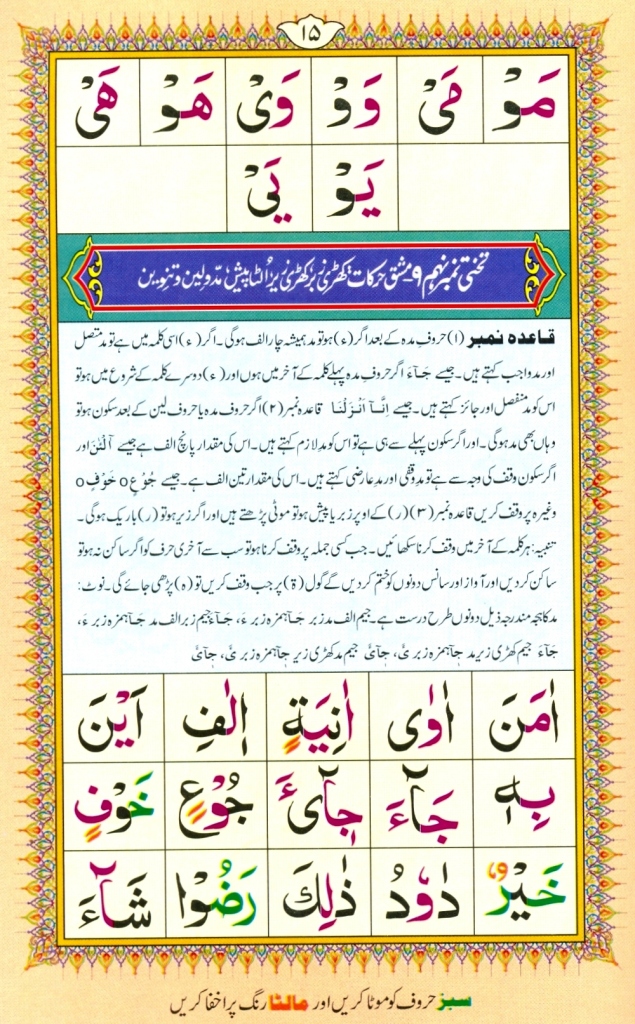 ۱۵
مَوْ مَیْ وَوْ وَیْ هَوْ هَیْ
یَوْ یَیْ
تختی نمبر نہم ۹ مشق حرکات: کھڑی زبر کھڑی زیر اُلٹا پیش، مدّ ولین و تنوین
قاعدہ نمبر (۱) حروفِ مدہ کے بعد اگر (ء) ہو تو مد ہمیشہ چار الف ہوگی۔ اگر (ء) اسی کلمہ میں ہے تو مد متصل
اور مد واجب کہتے ہیں۔ جیسے جَآءَ اگر حروف مدہ پہلے کلمہ کے آخر میں ہوں اور (ء) دوسرے کلمہ کے شروع میں ہو تو
اس کو مد منفصل اور جائز کہتے ہیں۔ جیسے اِنَّآ اَنْزَلْنَا قاعدہ نمبر (۲) اگر حروف مدہ یا حروف لین کے بعد سکون ہو تو
وہاں بھی مد ہوگی۔ اور اگر سکون پہلے سے ہی ہے تو اس کو مد لازم کہتے ہیں۔ اس کی مقدار پانچ الف ہے جیسے آلْـٰٔنَ اور
اگر سکون وقف کی وجہ سے ہے تو مد وقفی اور مد عارضی کہتے ہیں۔ اس کی مقدار تین الف ہے۔ جیسے جُوْعٍ o خَوْفٍ o
وغیرہ پر وقف کریں قاعدہ نمبر (۳) (ر) کے اوپر زبر یا پیش ہو تو موٹی پڑھتے ہیں اور اگر زیر ہو تو (ر) باریک ہوگی۔
تنبیہ: ہر کلمہ کے آخر میں وقف کرنا سکھائیں۔ جب کسی جملہ پر وقف کرنا ہو تو سب سے آخری حرف کو اگر ساکن نہ ہو تو
ساکن کر دیں اور آواز اور سانس دونوں کو ختم کر دیں گے گول (ة) پر جب وقف کریں تو (ہ) پڑھی جائے گی۔ نوٹ:
مد کا ہجہ مندرجہ ذیل دونوں طرح درست ہے۔ جیم الف مد زبر جَآ ہمزہ زبر ءَ، جَآءَ جیم زبر الف مد جَآ ہمزہ زبر ءَ،
جَآءَ جیم کھڑی زیر مد جآ ہمزہ زبر ئَ، جآئَ جیم مد کھڑی زیر جآ ہمزہ زبر ئَ، جآئَ
اٰمَنَ اٰوٰی اٰنِیَةٍ اِلٰفِ اَیْنَ
بِهٖ جَآءَ جِآیْءَ جُوْعٍ خَوْفٍ
خَیْرٌ دَاوٗدُ ذٰلِكَ رَضُوْا شَآءَ
سبز حروف کو موٹا کریں اور مالٹا رنگ پر اخفا کریں